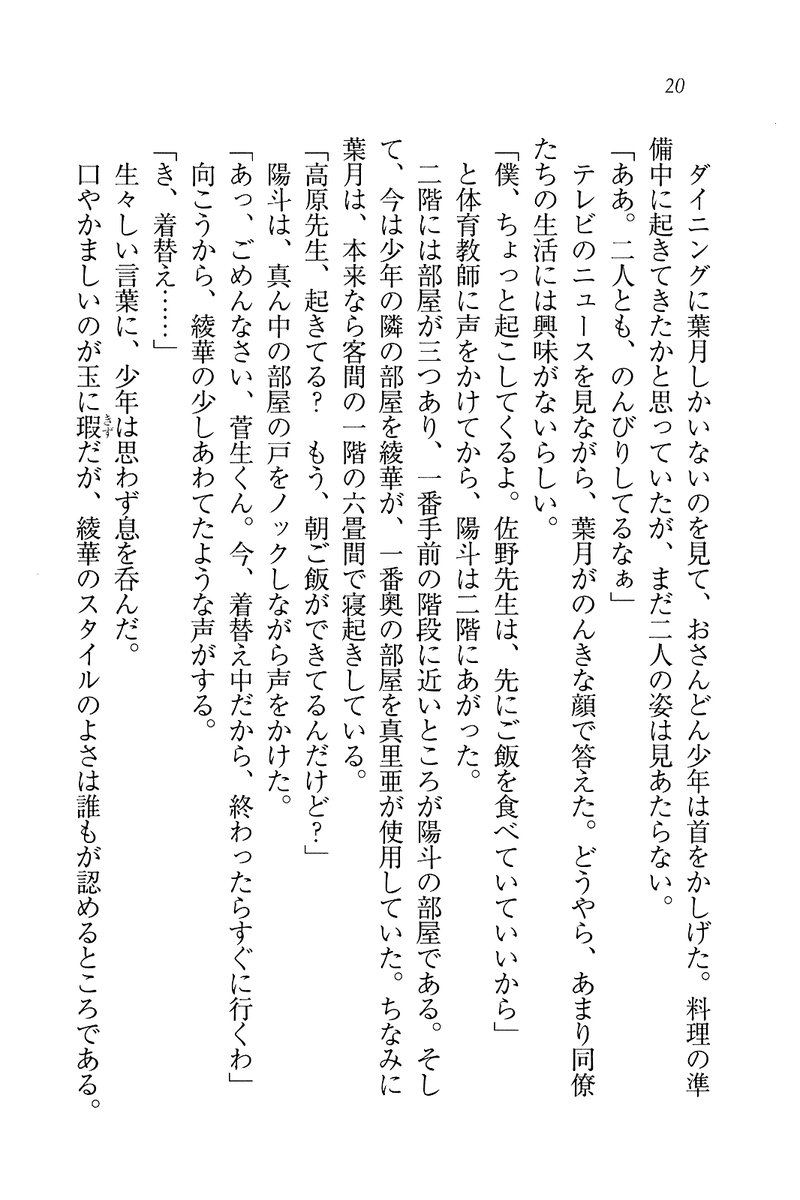 20
ダイニングに葉月しかいないのを見て、おさんどん少年は首をかしげた。料理の準
備中に起きてきたかと思っていたが、まだ二人の姿は見あたらない。
「ああ。二人とも、のんびりしてるなぁ」
テレビのニュースを見ながら、葉月がのんきな顔で答えた。どうやら、あまり同僚
たちの生活には興味がないらしい。
「僕、ちょっと起こしてくるよ。佐野先生は、先にご飯を食べていていいから」
と体育教師に声をかけてから、陽斗は二階にあがった。
二階には部屋が三つあり、一番手前の階段に近いところが陽斗の部屋である。そし
て、今は少年の隣の部屋を綾華が、一番奥の部屋を真里亜が使用していた。ちなみに
葉月は、本来なら客間の一階の六畳間で寝起きしている。
「高原先生、起きてる？　もう、朝ご飯ができてるんだけど？」
陽斗は、真ん中の部屋の戸をノックしながら声をかけた。
「あっ、ごめんなさい、菅生くん。今、着替え中だから、終わったらすぐに行くわ」
向こうから、綾華の少しあわてたような声がする。
「き、着替え……」
生々しい言葉に、少年は思わず息を呑んだ。
口やかましいのが玉に瑕きずだが、綾華のスタイルのよさは誰もが認めるところである。